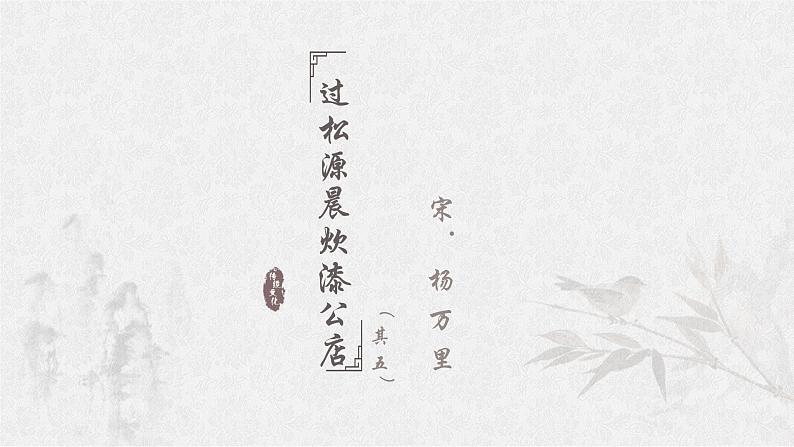 过松源晨炊漆公店
（其五）
宋·杨万里
传统文化